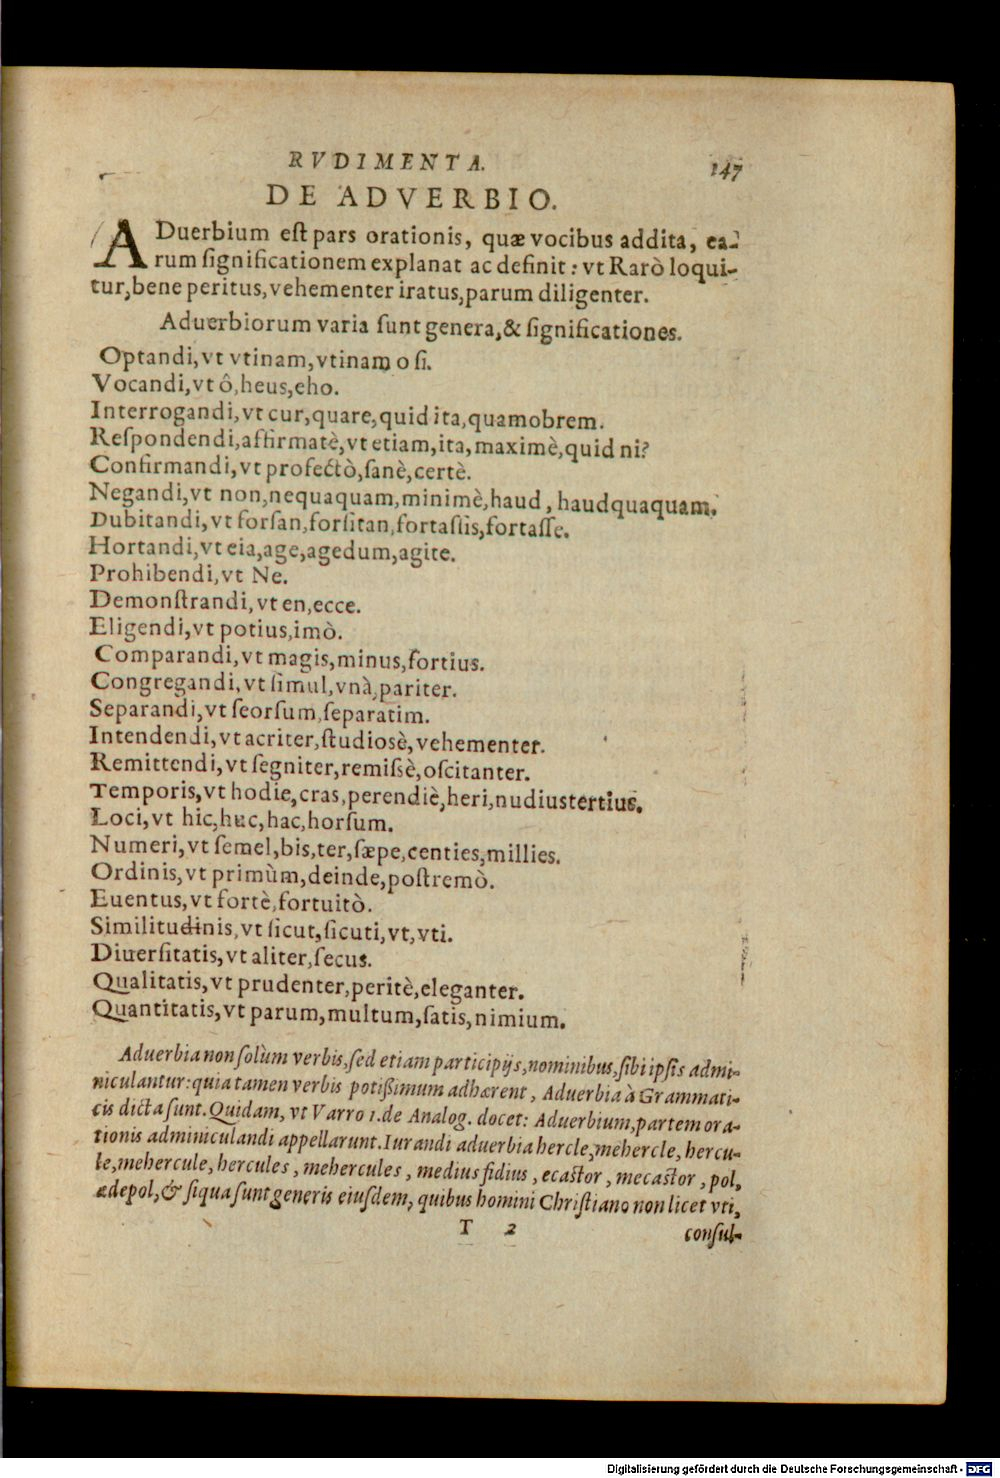 RVDIMENTA.
147
DE ADVERBIO.
ADuerbium eſt pars orationis, quæ vocibus addita, ea-
rum ſignificationem explanat ac definit: vt Rarò loqui-
tur, bene peritus, vehementer iratus, parum diligenter.
Aduerbiorum varia ſunt genera, & ſignificationes.
Optandi, vt vtinam, vtinam o ſi.
Vocandi, vt ô, heus, eho.
Interrogandi, vt cur, quare, quid ita, quamobrem.
Reſpondendi, affirmatè, vt etiam, ita, maximè, quid ni?
Confirmandi, vt profectò, ſanè, certè.
Negandi, vt non, nequaquam, minimè, haud, haudquaquam.
Dubitandi, vt forſan, forſitan, fortaſſis, fortaſſe.
Hortandi, vt eia, age, agedum, agite.
Prohibendi, vt Ne.
Demonſtrandi, vt en, ecce.
Eligendi, vt potius, imò.
Comparandi, vt magis, minus, fortius.
Congregandi, vt ſimul, vnà, pariter.
Separandi, vt ſeorſum, ſeparatim.
Intendendi, vt acriter, ſtudiosè, vehementer.
Remittendi, vt ſegniter, remiſsè, oſcitanter.
Temporis, vt hodie, cras, perendiè, heri, nudiustertius.
Loci, vt hic, huc, hac, horſum.
Numeri, vt ſemel, bis, ter, ſæpe, centies, millies.
Ordinis, vt primùm, deinde, poſtremò.
Euentus, vt fortè, fortuitò.
Similitudinis, vt ſicut, ſicuti, vt, vti.
Diuerſitatis, vt aliter, ſecus.
Qualitatis, vt prudenter, peritè, eleganter.
Quantitatis, vt parum, multum, ſatis, nimium.
Aduerbia non ſolùm verbis, ſed etiam participijs, nominibus, ſibi ipſis admi-
niculantur: quia tamen verbis potiſsimum adhærent, Aduerbia à Grammati-
cis dicta ſunt. Quidam, vt Varro 1. de Analog. docet: Aduerbium, partem ora-
tionis adminiculandi appellarunt. Iurandi aduerbia hercle, mehercle, hercu-
le, mehercule, hercules, mehercules, medius fidius, ecaſtor, mecaſtor, pol,
ædepol, & ſiqua ſunt generis eiuſdem, quibus homini Chriſtiano non licet vti,
T 2
conſul-
Digitalisierung gefördert durch die Deutsche Forschungsgemeinschaft - DFG